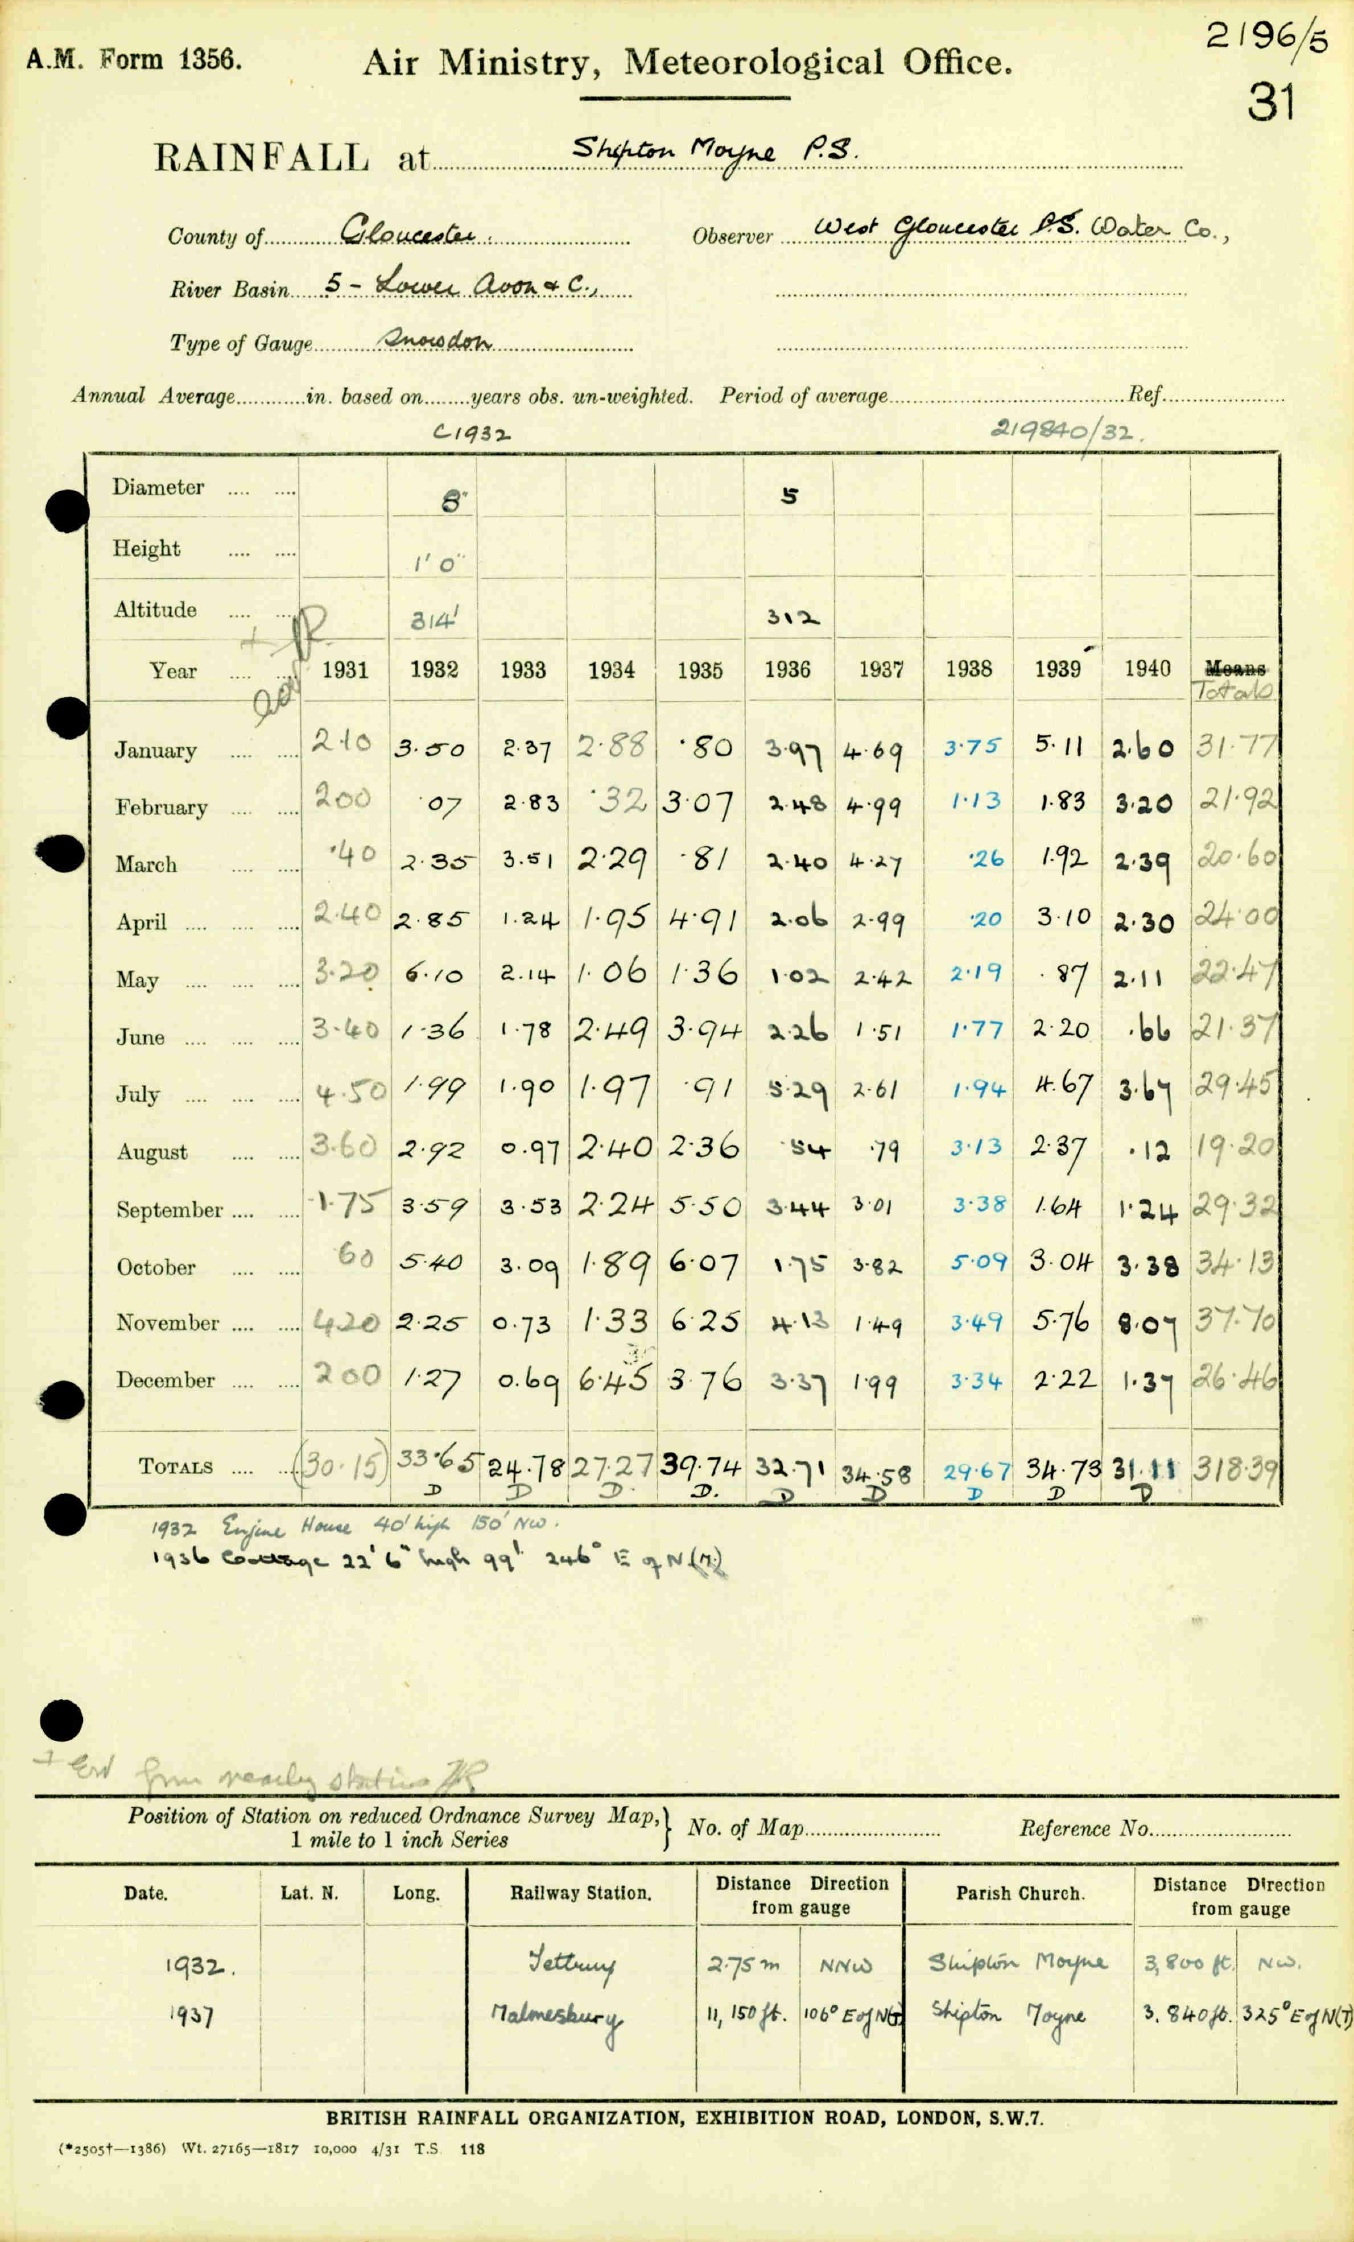 2196/5
A.M. Form 1356. Air Ministry, Meteorological Office.
31
RAINFALL at Shipton Moyne P.S.
County of Gloucester. Observer West Gloucester P.S. Water Co.,
River Basin 5 - Lower Avon & C.,
Type of Gauge Snowdon
Annual Average in. based on years obs. un-weighted. Period of average Ref.
C1932 219840/32.
Diameter 8" 5
Height 1' 0"
Altitude 314' 312
Year 1931 1932 1933 1934 1935 1936 1937 1938 1939 1940 Means
Totals
January 2.10 3.50 2.37 2.88 .80 3.97 4.69 3.75 5.11 2.60 31.77
February 2.00 .07 2.83 .32 3.07 2.48 4.99 1.13 1.83 3.20 21.92
March .40 2.35 3.51 2.29 .81 2.40 4.27 .26 1.92 2.39 20.60
April 2.40 2.85 1.24 1.95 4.91 2.06 2.99 .20 3.10 2.30 24.00
May 3.20 6.10 2.14 1.06 1.36 1.02 2.42 2.19 .87 2.11 22.47
June 3.40 1.36 1.78 2.49 3.94 2.26 1.51 1.77 2.20 .66 21.37
July 4.50 1.99 1.90 1.97 .91 5.29 2.61 1.94 4.67 3.67 29.45
August 3.60 2.92 0.97 2.40 2.36 .54 .79 3.13 2.37 .12 19.20
September 1.75 3.59 3.53 2.24 5.50 3.44 3.01 3.38 1.64 1.24 29.32
October 60 5.40 3.09 1.89 6.07 1.75 3.82 5.09 3.04 3.38 34.13
November 4.20 2.25 0.73 1.33 6.25 4.13 1.49 3.49 5.76 8.07 37.70
December 2.00 1.27 0.69 6.45 3.76 3.37 1.99 3.34 2.22 1.37 26.46
TOTALS (30.15) 33.65 24.78 27.27 39.74 32.71 34.58 29.67 34.73 31.11 318.39
D D D. D. D D D D D
1932 Engine House 40' high 150' NW.
1936 Cottage 22' 6" high 99' 246° E of N (M)
from nearby stations
Position of Station on reduced Ordnance Survey Map, } No. of Map Reference No.
1 mile to 1 inch Series
Date. Lat. N. Long. Railway Station. Distance Direction from gauge Parish Church. Distance Direction from gauge
1932. Tetbury 2.75 m NNW Shipton Moyne 3,800 ft. NW.
1937 Malmesbury 11,150 ft. 106° E of N(T) Shipton Moyne 3,840 ft. 325° E of N(T)
BRITISH RAINFALL ORGANIZATION, EXHIBITION ROAD, LONDON, S.W.7.
(*2505†—1386) Wt. 27165—1817 10,000 4/31 T.S. 118